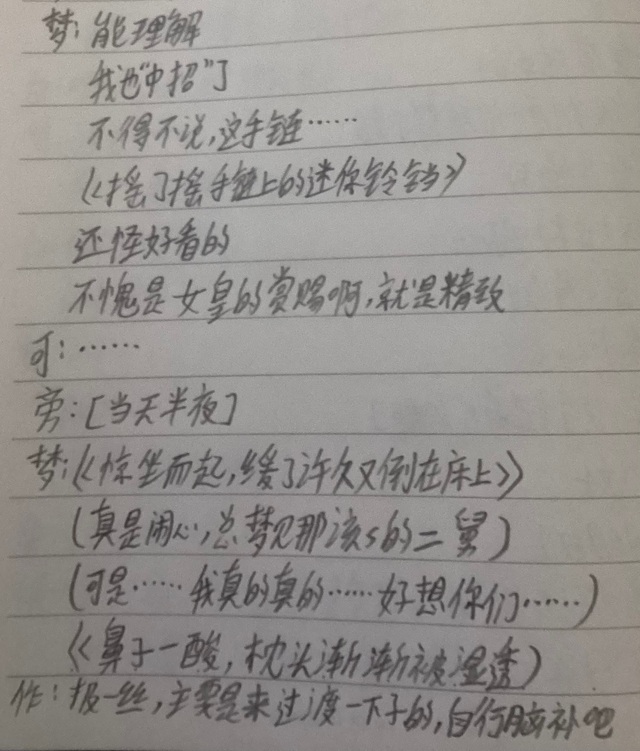 梦:能理解
我也“中招”了
不得不说,这手链……
《摇了摇手链上的迷你铃铛》
还怪好看的
不愧是女皇的赏赐啊,就是精致
可:……
旁:[当天半夜]
梦:《惊坐而起,缓了许久又倒在床上》
(真是闹心,总梦见那该s的二舅)
(可是……我真的真的……好想你们……)
《鼻子一酸,枕头渐渐被湿透)
作:报一丝,主要是来过渡一下子的,自行脑补吧